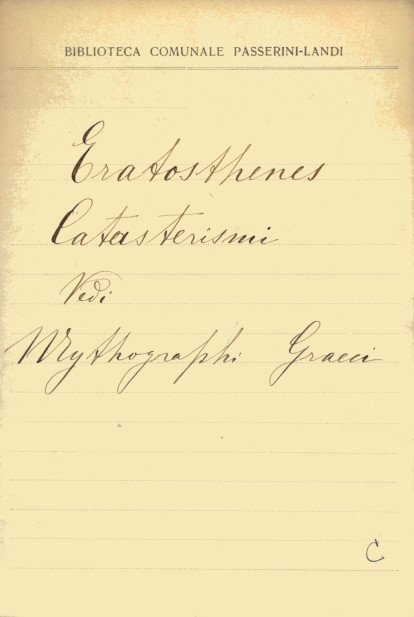 BIBLIOTECA COMUNALE PASSERINI-LANDI
Eratosthenes
Catasterismi
Vedi
Mythographi Graeci
C